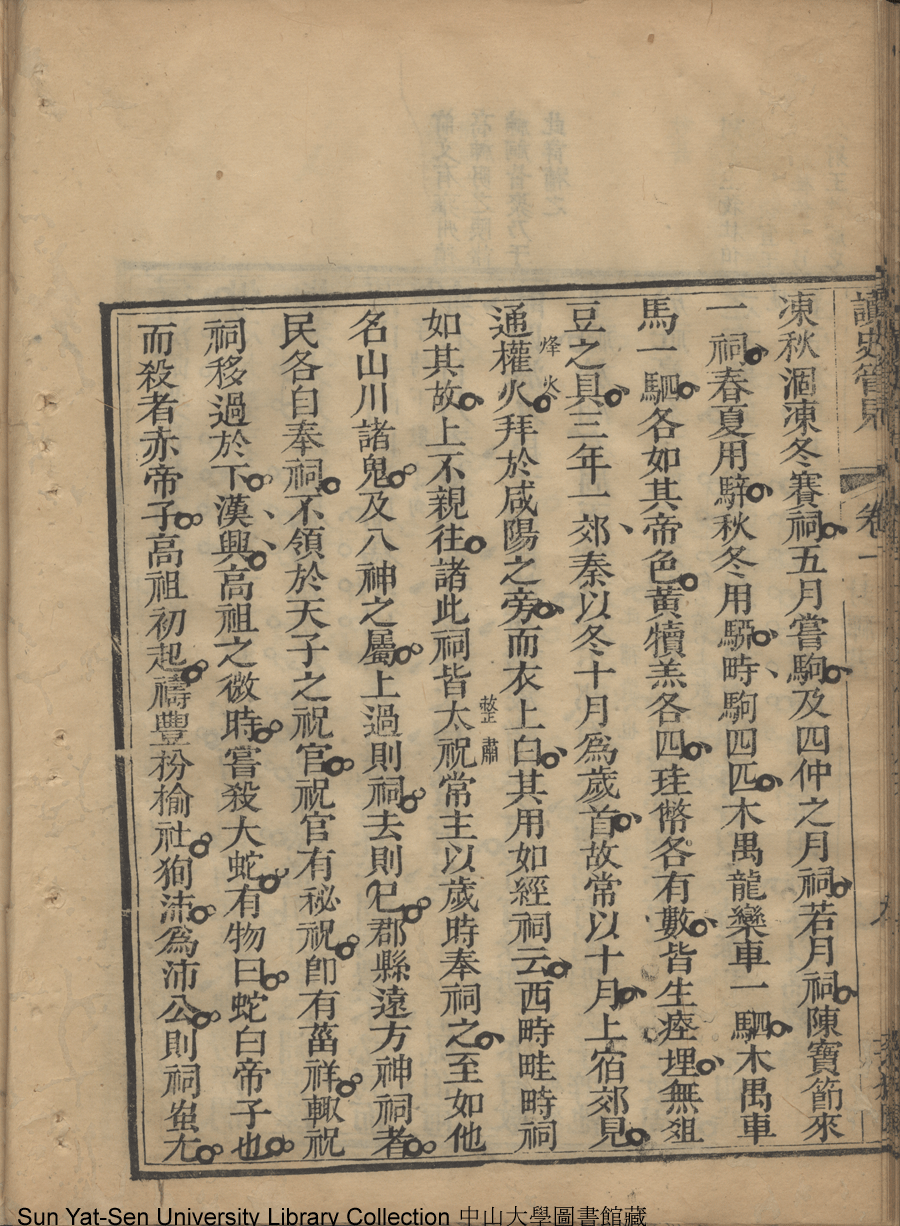 讀史管見 卷一
凍秋涸凍冬賽祠五月嘗駒及四仲之月祠若月祠陳寶節來
一祠春夏用騂秋冬用駵畤駒四匹木禺龍欒車一駟木禺車
馬一駟各如其帝色黃犢羔各四珪幣各有數皆生瘞埋無俎
豆之具三年一郊秦以冬十月為歲首故常以十月上宿郊見
通權火拜於咸陽之旁而衣上白其用如經祠云西畤畦畤祠
烽火
如其故上不親往諸此祠皆太祝常主以歲時奉祠之至如他
整肅
名山川諸鬼及八神之屬上過則祠去則已郡縣遠方神祠者
民各自奉祠不領於天子之祝官祝官有秘祝即有菑祥輙祝
祠移過於下漢興高祖之微時嘗殺大蛇有物曰蛇白帝子也
而殺者赤帝子高祖初起禱豐枌榆社狥沛為沛公則祠蚩尤
Sun Yat-Sen University Library Collection 中山大學圖書館藏